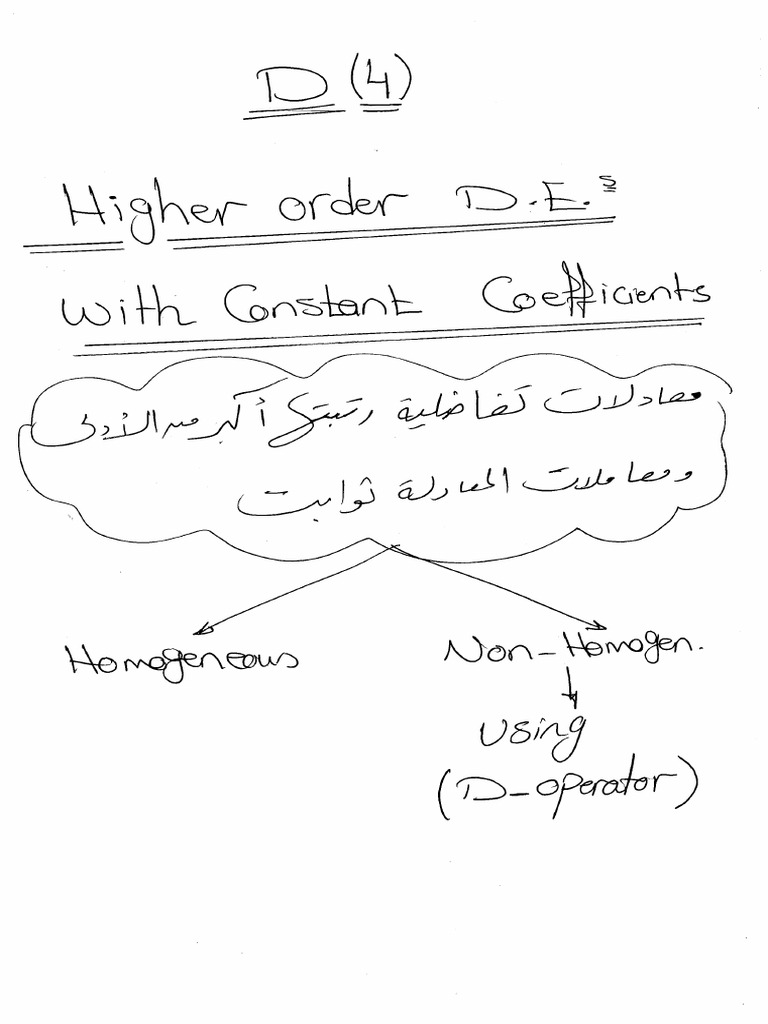 D (4)
Higher order D.E.s
with Constant Coefficients
معادلات تفاضلية رتبتها أكبر من الأولى
ومعاملات المعادلة ثوابت
Homogeneous
Non-Homogen.
Using
(D-operator)